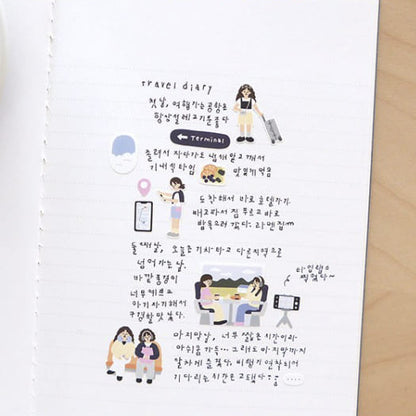 travel diary
첫날, 여행가는 공항은
항상 설레고 기분 좋다
← Terminal
졸려서 자다가도 냄새 맡고 깨서
기내식 타임 맛있게 먹음
도착해서 바로 호텔가기.
배고파서 짐 풀고 바로
밥 먹으러 갔다. 라멘집
둘째날, 오늘은 기차 타고 다른 지역으로
넘어가는 날.
바깥 풍경이
너무 예쁘고
아기자기해서
구경할 맛 났다.
마지막날, 너무 짧은 시간이라
아쉬움 가득... 그래도 마지막까지
알차게 즐겼다, 비행기 연착되어
기다리는 시간은 고됐다